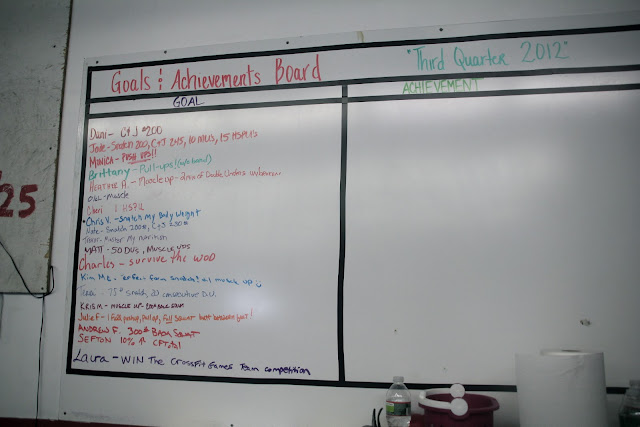 Goals & Achievements Board
"Third Quarter 2012"
GOAL
ACHIEVEMENT
25
Dani - C+J #200
Jade - Snatch 200, C+J 245, 10 MUs, 15 HSPU's
MONICA - PUSH UPS!!
Brittany - Pull-ups! (no band)
HEATHER A. - Muscle up - 2 min of Double Unders unbroken
Cheri 1 HSPU
Chris V. - Snatch My Body Weight
Nate - Snatch 200#, C+J 250#
Master My Nutrition
MATT - 50 DUs, MUSCLE UPS
Charles - survive the WOD
Kim M.E. - perfect form snatch! a muscle up
75# snatch, 20 consecutive D.U.
KRIS M - MUSCLE UP -
Julie F - 1 Full pushup, pullup, full squat butt between feet!
ANDREW F. 300# Back Squat
SEFTON 10% ↑ CFTotal
Laura - WIN The CrossFit Games Team competition